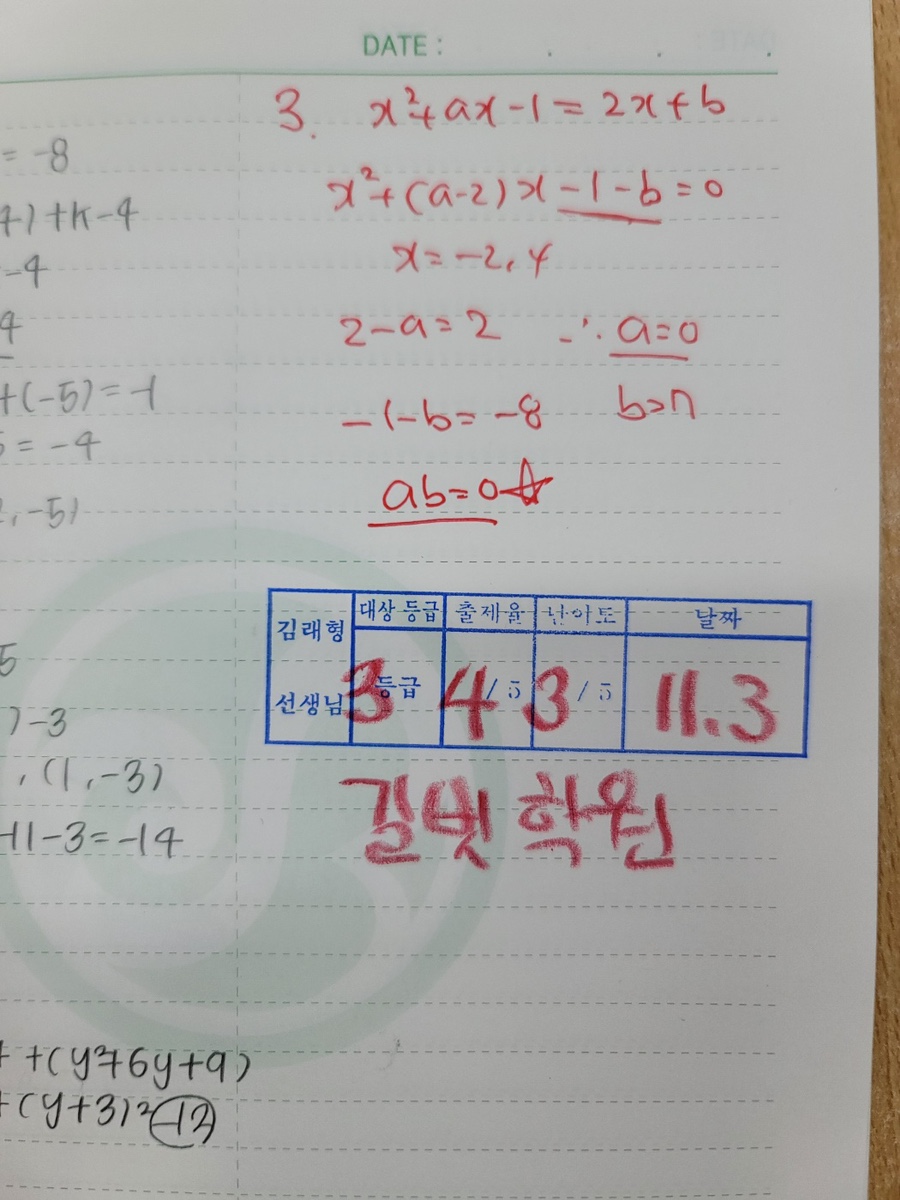 DATE : . . .
3. x²+ax-1=2x+b
x²+(a-2)x-1-b=0
x=-2,4
2-a=2 ∴ a=0
-1-b=-8 b=7
ab=0☆
= -8
4)+k-4
-4
4
+(-5)=-1
5=-4
,-5)
5
)-3
,(1,-3)
-11-3=-14
김래형 선생님
대상 등급 출제율 난이도 날짜
3등급 4/5 3/5 11.3
길벗 학원
+(y²+6y+9)
+(y+3)²-12